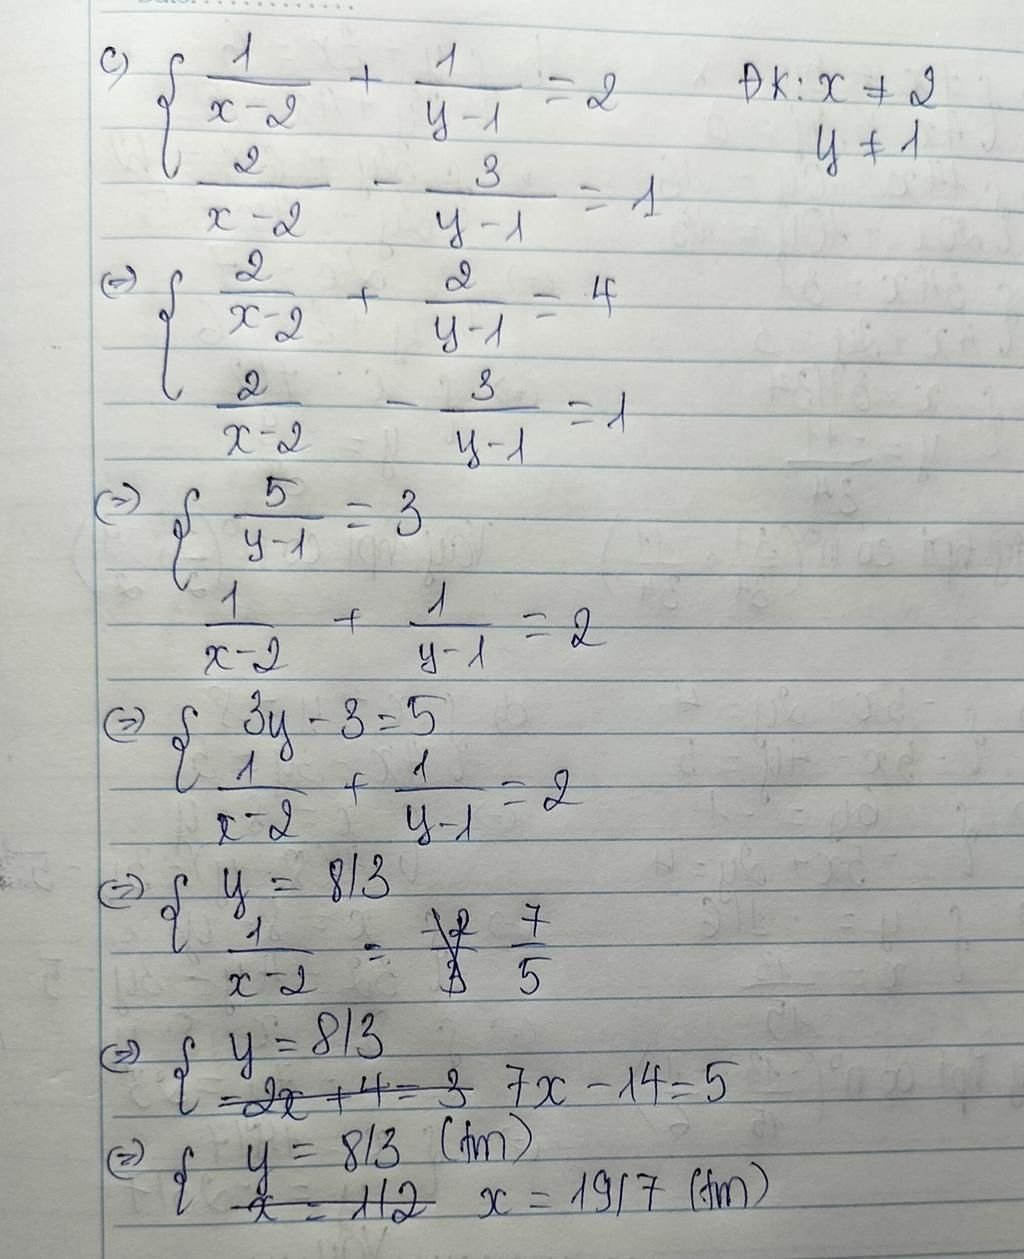 c) { 1/(x-2) + 1/(y-1) = 2 ĐK: x ≠ 2
y ≠ 1
2/(x-2) - 3/(y-1) = 1
(=) { 2/(x-2) + 2/(y-1) = 4
2/(x-2) - 3/(y-1) = 1
(=) { 5/(y-1) = 3
1/(x-2) + 1/(y-1) = 2
(=) { 3y - 3 = 5
1/(x-2) + 1/(y-1) = 2
(=) { y = 8/3
1/(x-2) = 7/5
(=) { y = 8/3
-2x + 4 = 3 7x - 14 = 5
(=) { y = 8/3 (tm)
x = 1/2 x = 19/7 (tm)